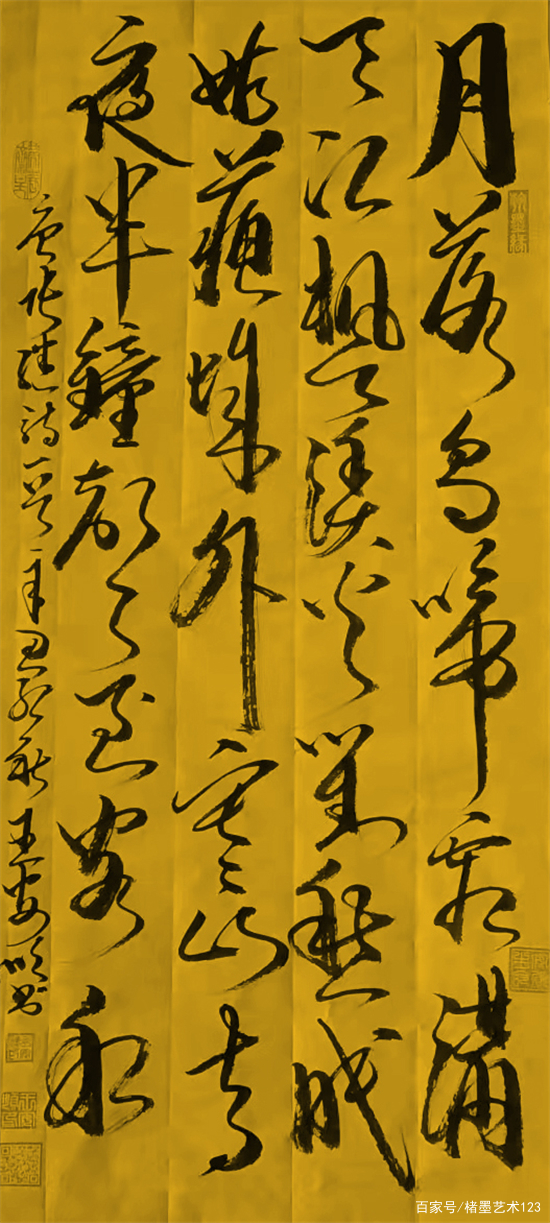 月落烏啼霜满
天江枫渔火對愁眠
姑蘇城外寒山寺
夜半鐘聲到客船
唐张继诗一首辛丑初秋王安顺书
百家号/楮墨艺术123